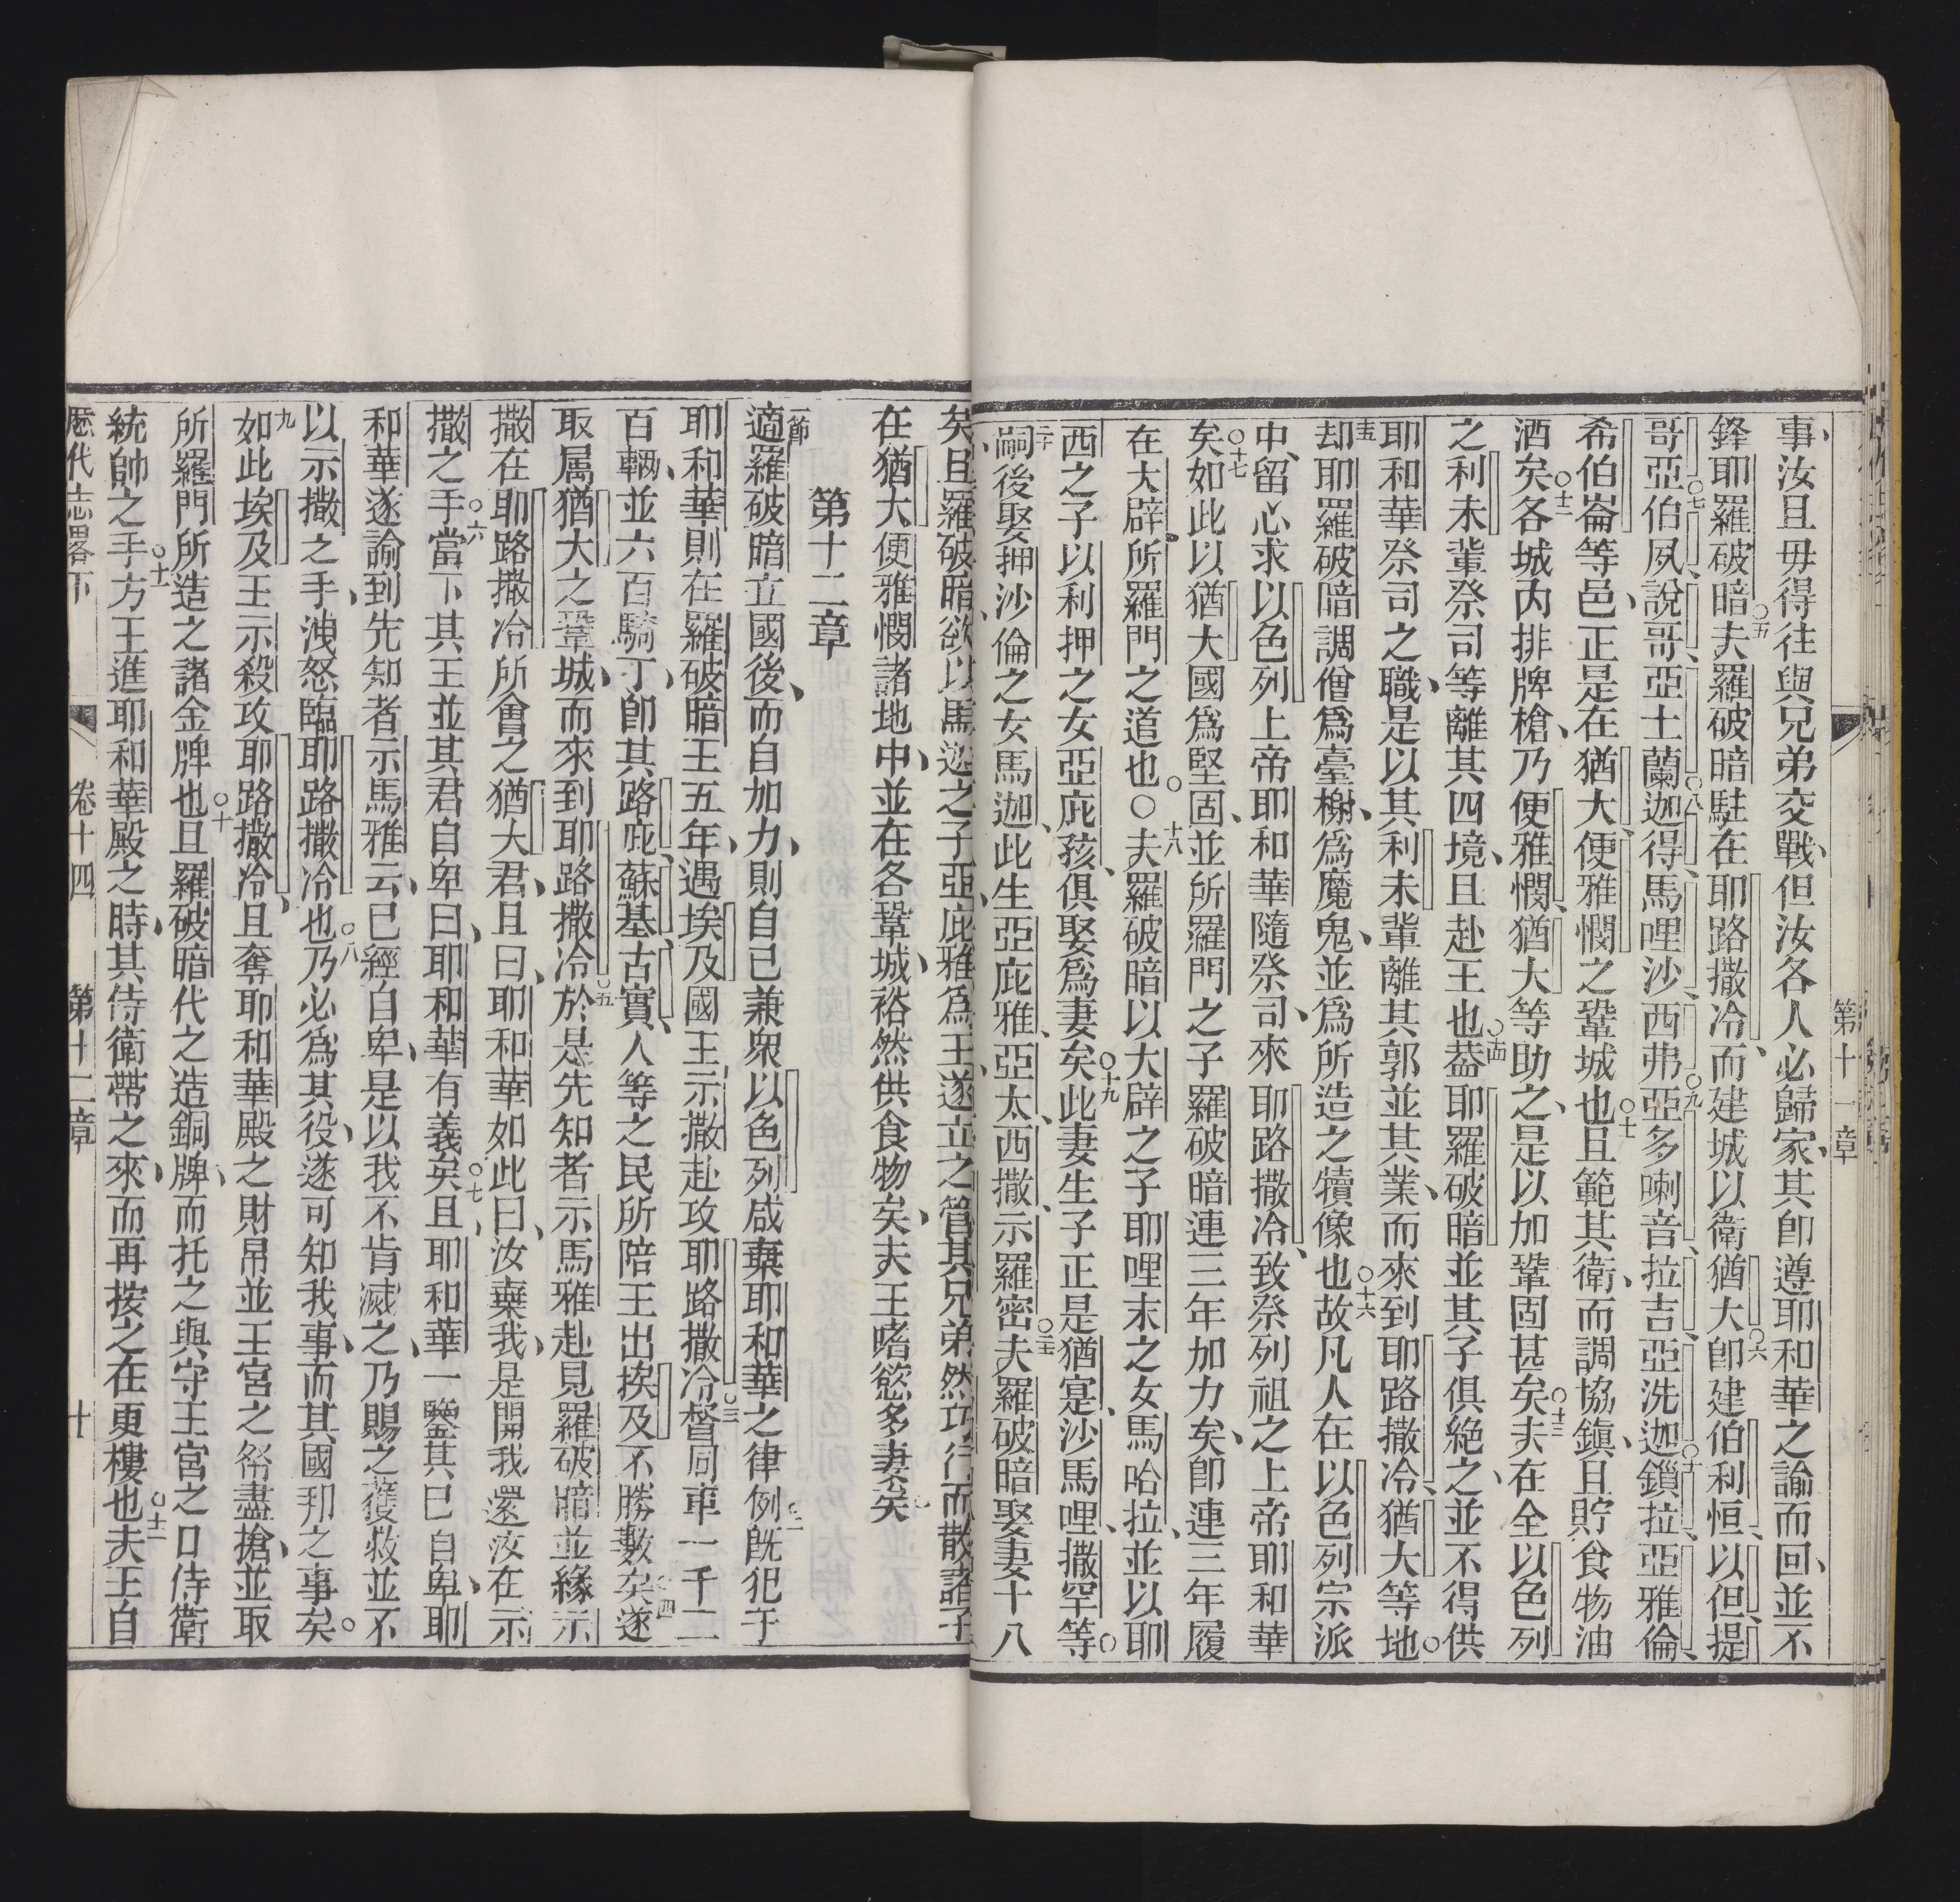 第十一章
事、汝且毋得往與兄弟交戰、但汝各人必歸家、其卽遵耶和華之諭而回、並不
鋒耶羅破暗○五夫羅破暗駐在耶路撒冷、而建城以衛猶大○六卽建伯利恒、以但、提
哥亞○七伯夙、說哥、亞土蘭○八迦得、馬哩沙、西弗○九亞多喇音、拉吉、亞洗迦○十鎖拉、亞雅倫、
希伯崙等邑、正是在猶大、便雅憫之鞏城也○十一且範其衛、而調協鎭、且貯食物油
酒矣○十二各城內排牌槍、乃便雅憫、猶大等助之、是以加鞏固甚矣○十三夫在全以色列
之利未輩祭司等離其四境、且赴王也○十四葢耶羅破暗並其子俱絶之、並不得供
耶和華祭司之職、是以其利未輩離其郭並其業、而來到耶路撒冷、猶大等地○
十五却耶羅破暗調僧爲臺榭、爲魔鬼、並爲所造之犢像也○十六故凡人在以色列宗派
中、留心求以色列上帝耶和華隨祭司、來耶路撒冷、致祭列祖之上帝耶和華
矣○十七如此以猶大國爲堅固、並所羅門之子羅破暗連三年加力矣、卽連三年履
在大辟、所羅門之道也○○十八夫羅破暗以大辟之子耶哩末之女馬哈拉、並以耶
西之子以利押之女亞庇孩、俱娶爲妻矣○十九此妻生子正是猶寔、沙馬哩、撒罕等○
二十嗣後娶押沙倫之女馬迦、此生亞庇雅、亞太、西撒、示羅密○二十一夫羅破暗娶妻十八
矣、且羅破暗、欲以馬迦之子亞庇雅爲王、遂立之管其兄弟、然巧行而散諸子
在猶大、便雅憫諸地中、並在各鞏城、裕然供食物矣、夫王嗜慾多妻矣
第十二章
一節適羅破暗立國後、而自加力、則自己兼衆以色列咸棄耶和華之律例○二旣犯于
耶和華、則在羅破暗王五年、遇埃及國王示撒赴攻耶路撒冷○三督同車一千二
百輛、並六百騎丁、卽其路庇、蘇基、古實、人等之民所陪王出埃及、不勝數矣○四遂
取属猶大之鞏城、而來到耶路撒冷○五於是先知者示馬雅赴見羅破暗、並緣示
撒在耶路撒冷所會之猶大君、且曰、耶和華如此曰、汝棄我、是開我還汝在示
撒之手○六當下其王並其君自卑曰、耶和華有義矣○七且、耶和華一鑒其已自卑、耶
和華遂諭到先知者示馬雅云、已經自卑、是以我不肯滅之、乃賜之獲救並不
以示撒之手、洩怒臨耶路撒冷也○八乃必爲其役、遂可知我事、而其國邦之事矣。
九如此埃及王示殺攻耶路撒冷、且奪耶和華殿之財帛並王宮之帑盡搶、並取
所羅門所造之諸金牌也○十且羅破暗代之造銅牌、而托之與守王宮之口侍衛
統帥之手○十一方王進耶和華殿之時、其侍衛帶之來、而再按之在更樓也○十二夫王自
厯代志畧下　卷十四　第十二章　十